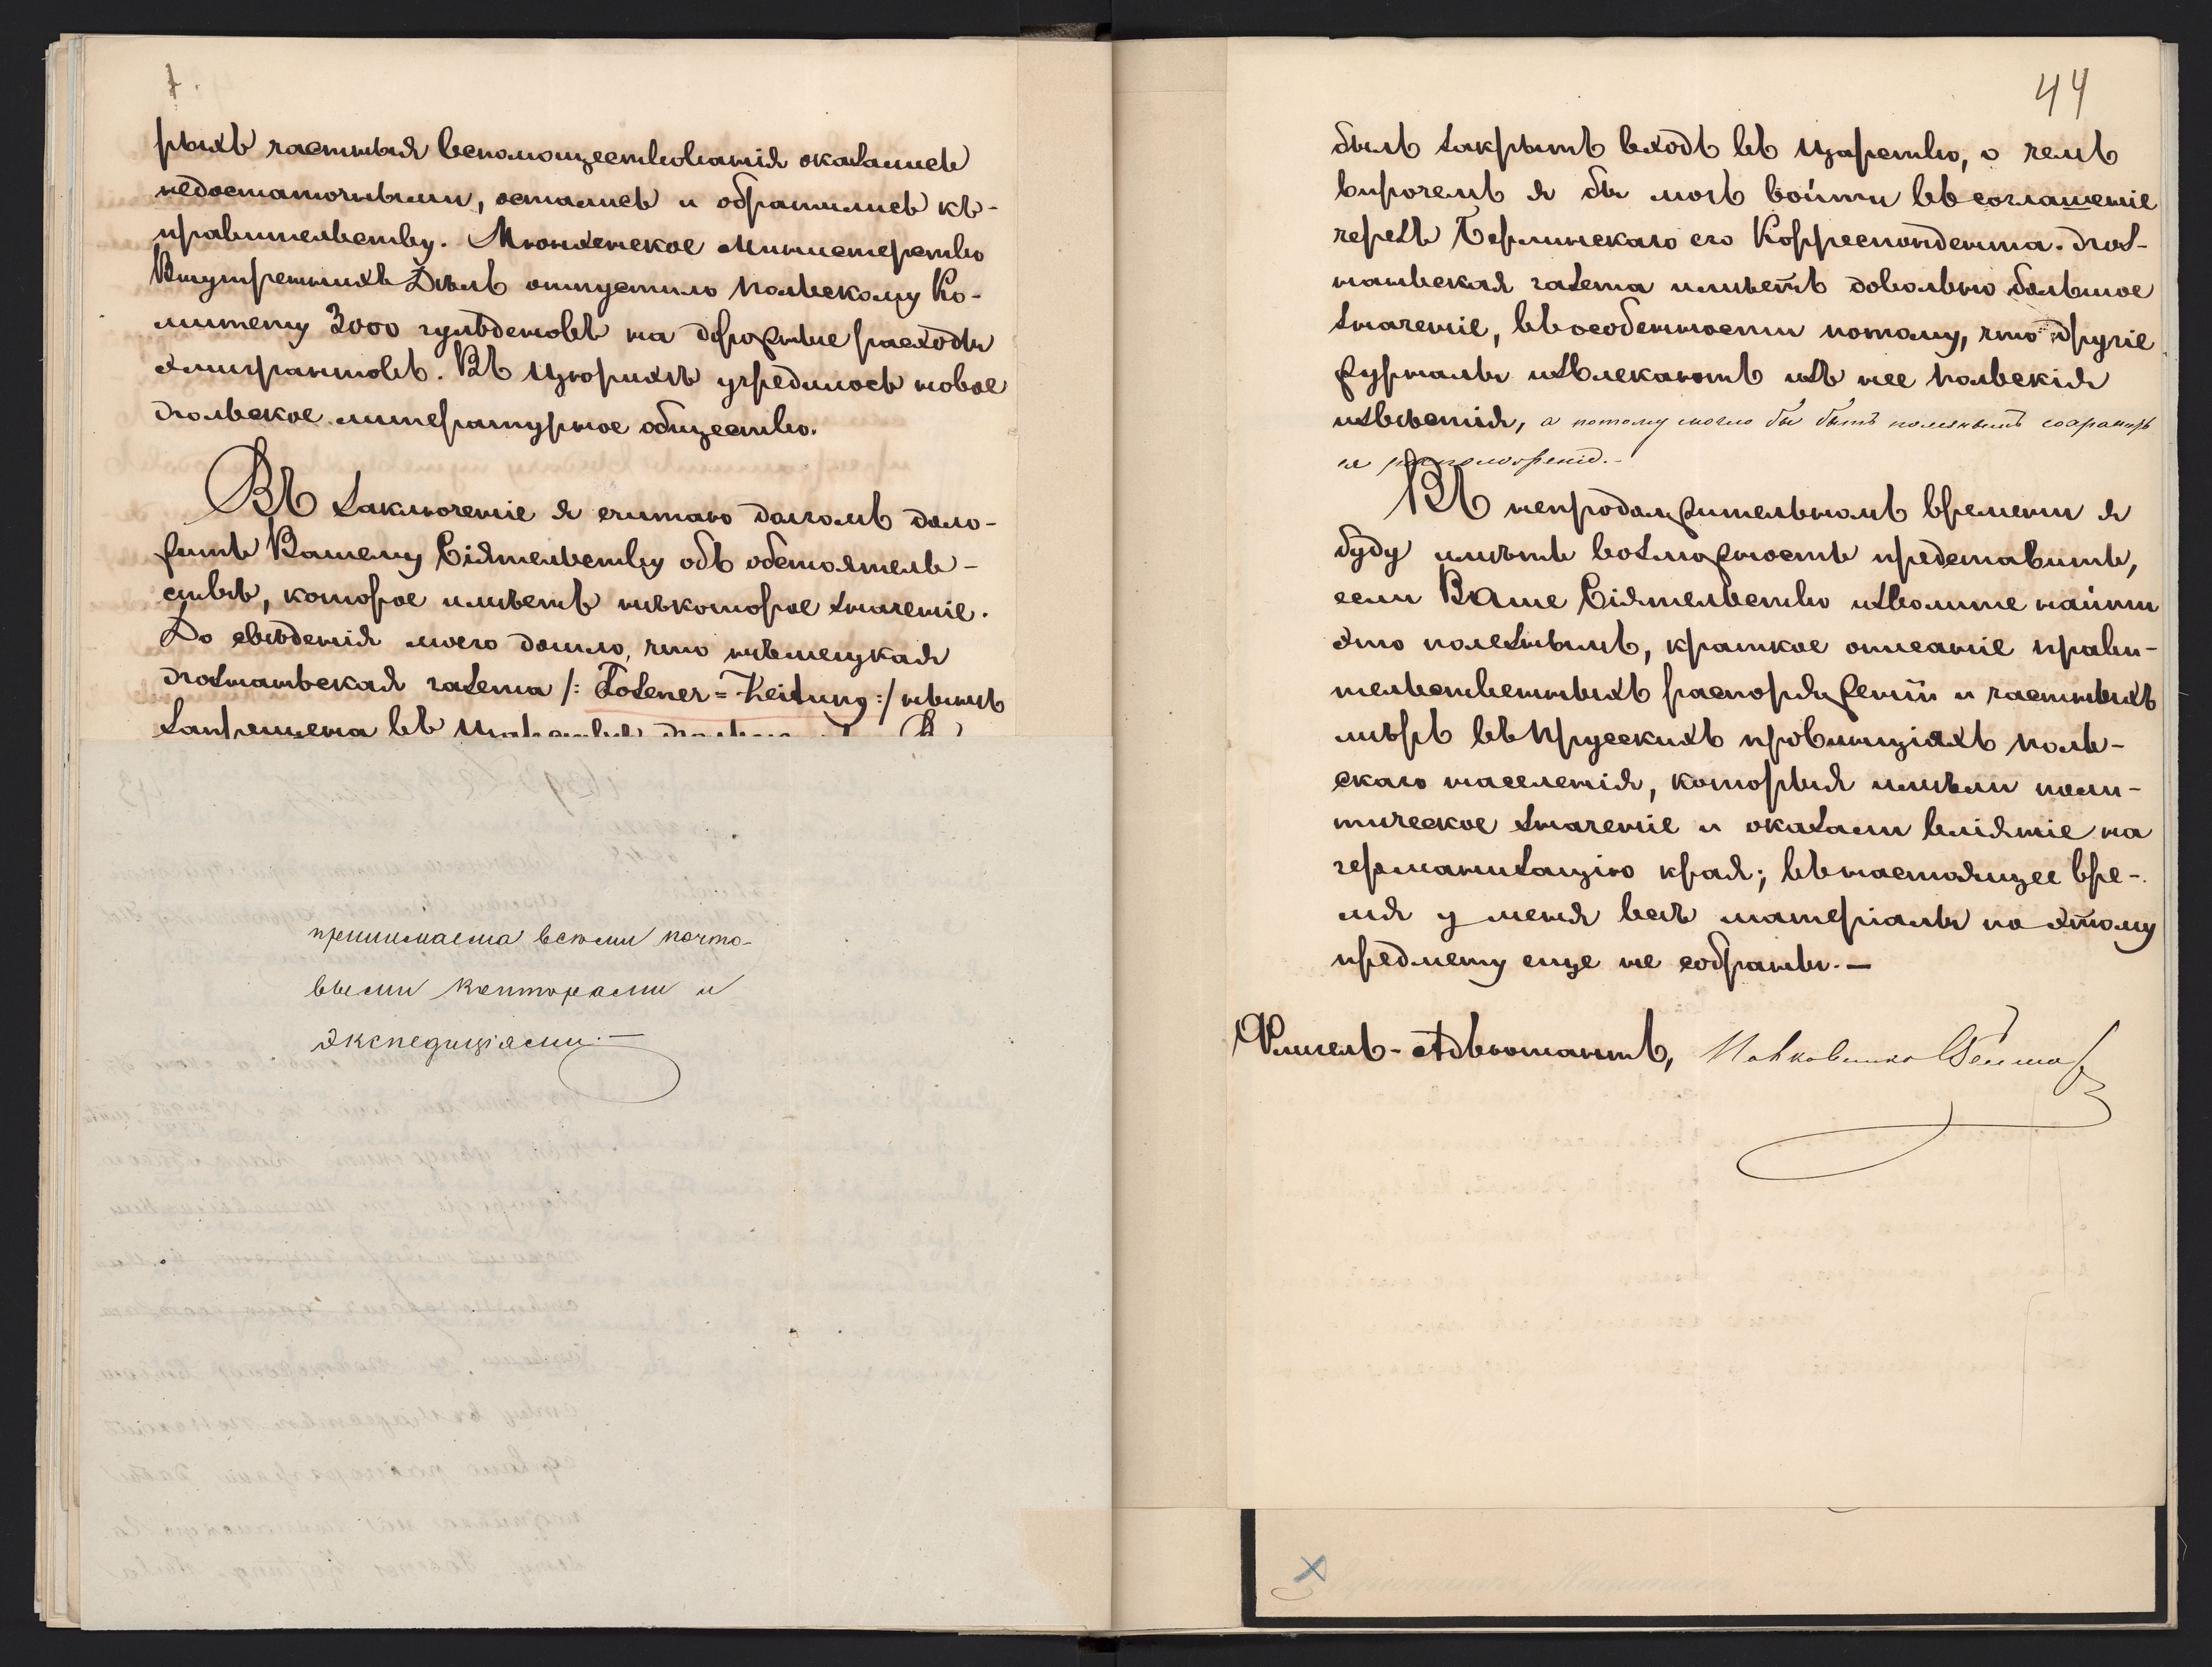 рыхъ частныя вспомоществованія оказались
недостаточными, остались и обратились къ-
правительству. Мюнхенское Министерство
Внутреннихъ Дѣлъ отпустило Польскому Ко-
митету 3000 гульденовъ на дорожные расходы
эмигрантовъ. Въ Цюрихѣ учредилось новое
Польское литературное общество.
Въ заключеніе я считаю долгомъ доло-
жить Вашему Сіятельству объ обстоятель-
ствѣ, которое имѣетъ нѣкоторое значеніе.
До свѣденія моего дошло, что нѣмецкая
Познаньская газета /: Posener = Zeitung :/ нынѣ
запрещена въ Царствѣ
принимаема всѣми почто-
выми Конторами и
Экспедиціями. —
44
былъ закрытъ входъ въ Царство, о чемъ
впрочемъ я бы могъ войти въ соглашеніе
черезъ Берлинскаго его Корреспондента. Поз-
наньская газета имѣетъ довольно большое
значеніе, въ особенности потому, что другіе
журналы извлекаютъ изъ нее Польскія
извѣстія, а потому могло бы быть полезнымъ сохранить
ея
Въ непродолжительномъ времени я
буду имѣть возможность представить,
если Ваше Сіятельство изволите найти
это полезнымъ, краткое описаніе прави-
тельственныхъ распоряженій и частныхъ
мѣръ въ Прусскихъ провинціяхъ Поль-
скаго населенія, которыя имѣли поли-
тическое значеніе и оказали вліяніе на
германизацію края; въ настоящее вре-
мя у меня всѣ матеріалы по этому
предмету еще не собраны. —
Флигель-Адъютантъ, Полковникъ Веймарнъ